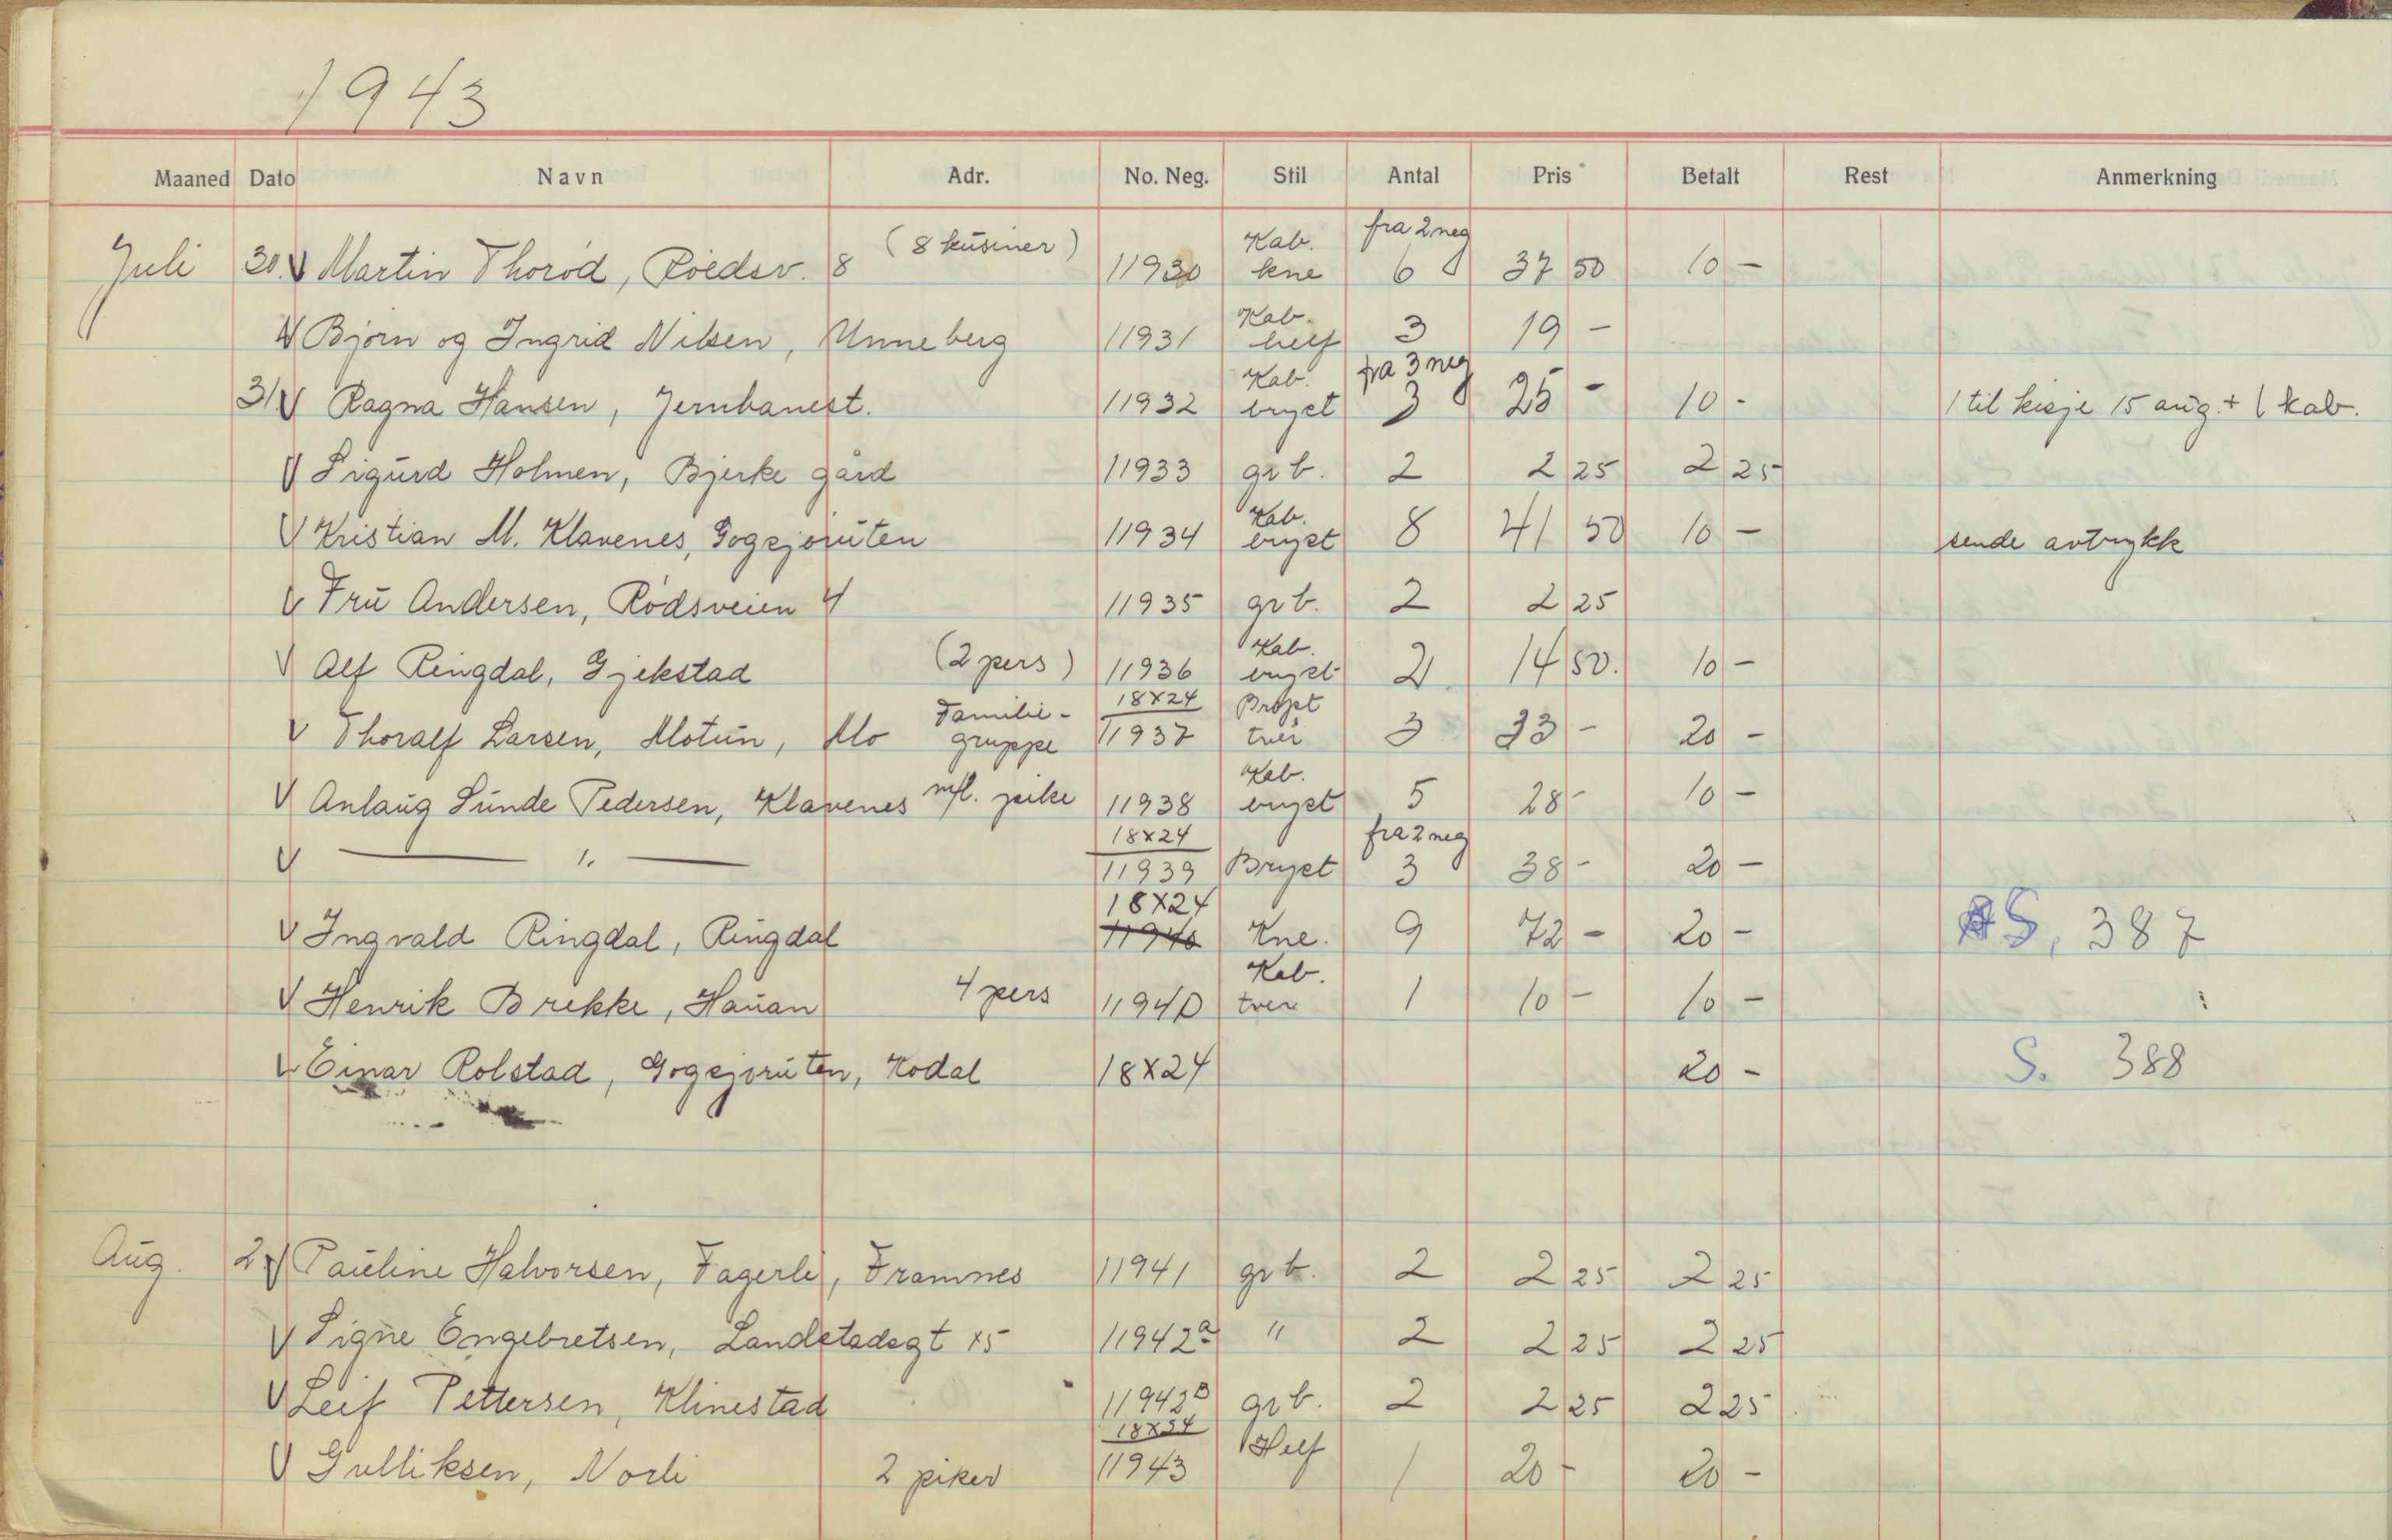 1943
Maaned Dato Navn Adr. No. Neg. Stil Antal Pris Betalt Rest Anmerkning
Juli 30. V Martin Thorød, Röedsv. 8 (8 kusiner) 11930 Kab. kne fra 2 neg 6 37 50 10 -
V Bjørn og Ingrid Nilsen, Unneberg 11931 Kab. helf 3 19 -
31 V Ragna Hansen, Jernbanest. 11932 Kab. bryst fra 3 neg 3 25 - 10 - 1 til kisje 15 aug. + 1 kab.
V Sigurd Holmen, Bjerke gård 11933 gr b. 2 2 25 2 25
V Kristian M. Klavenes, Gogsjøruten 11934 Kab. bryst 8 41 50 10 - sende avtrykk
V Fru Andersen, Rødsveien 4 11935 gr b. 2 2 25
V Alf Ringdal, Gjekstad (2 pers) 11936 Kab. bryst 2 14 50. 10 -
V Thoralf Larsen, Motun, Mo Familie-gruppe 18x24 11937 Bryst tver 3 33 - 20 -
V Anlaug Sunde Pedersen, Klavenes m/l. pike 11938 Kab. bryst 5 28 - 10 -
V — " — 18x24 11939 Bryst fra 2 neg 3 38 - 20 -
V Ingvald Ringdal, Ringdal 18x24 11940 Kne. 9 72 - 20 - S. 387
V Henrik Brekke, Hauan 4 pers 11940 Kab. tver 1 10 - 10 -
V Einar Rolstad, Gogsjøruten, Kodal 18x24 20 - S. 388
Aug. 2 V Pauline Halvorsen, Fagerli, Framnes 11941 gr b. 2 2 25 2 25
V Signe Engebretsen, Landstadsgt 15 11942a " 2 2 25 2 25
V Leif Pettersen, Klinestad 11942B gr b. 2 2 25 2 25
V Gulliksen, Norli 2 piker 18x24 11943 Helf 1 20 - 20 -